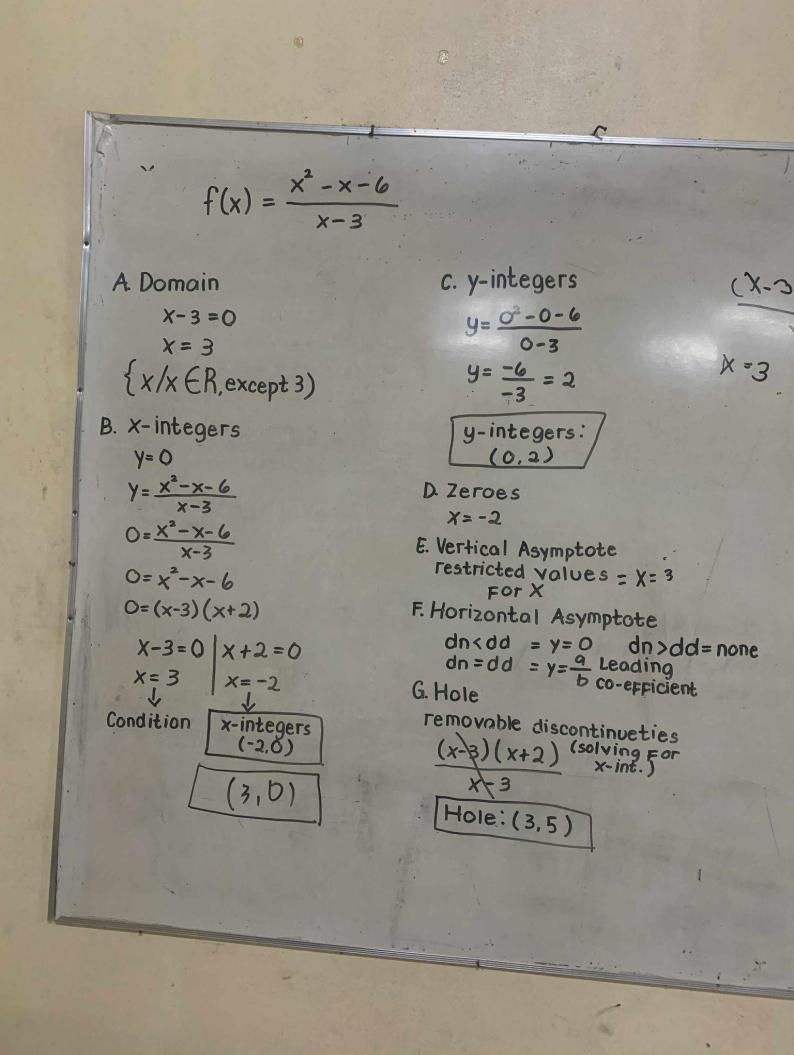 f(x) = x² - x - 6 / x - 3
A. Domain
x - 3 = 0
x = 3
{x/x ∈ R, except 3)
B. x-integers
y = 0
y = x² - x - 6 / x - 3
0 = x² - x - 6 / x - 3
0 = x² - x - 6
0 = (x-3)(x+2)
x - 3 = 0 | x + 2 = 0
x = 3 | x = -2
↓ ↓
Condition
x-integers
(-2,0)
(3,0)
C. y-integers
y = 0² - 0 - 6 / 0 - 3
y = -6 / -3 = 2
y-integers:
(0,2)
D. Zeroes
x = -2
E. Vertical Asymptote
restricted values = x = 3
For X
F. Horizontal Asymptote
dn < dd = y = 0 dn > dd = none
dn = dd = y = a/b Leading
co-efficient
G. Hole
removable discontinueties
(x-3)(x+2) / x-3 (solving For
x-int.)
Hole: (3,5)
(x-3
x = 3